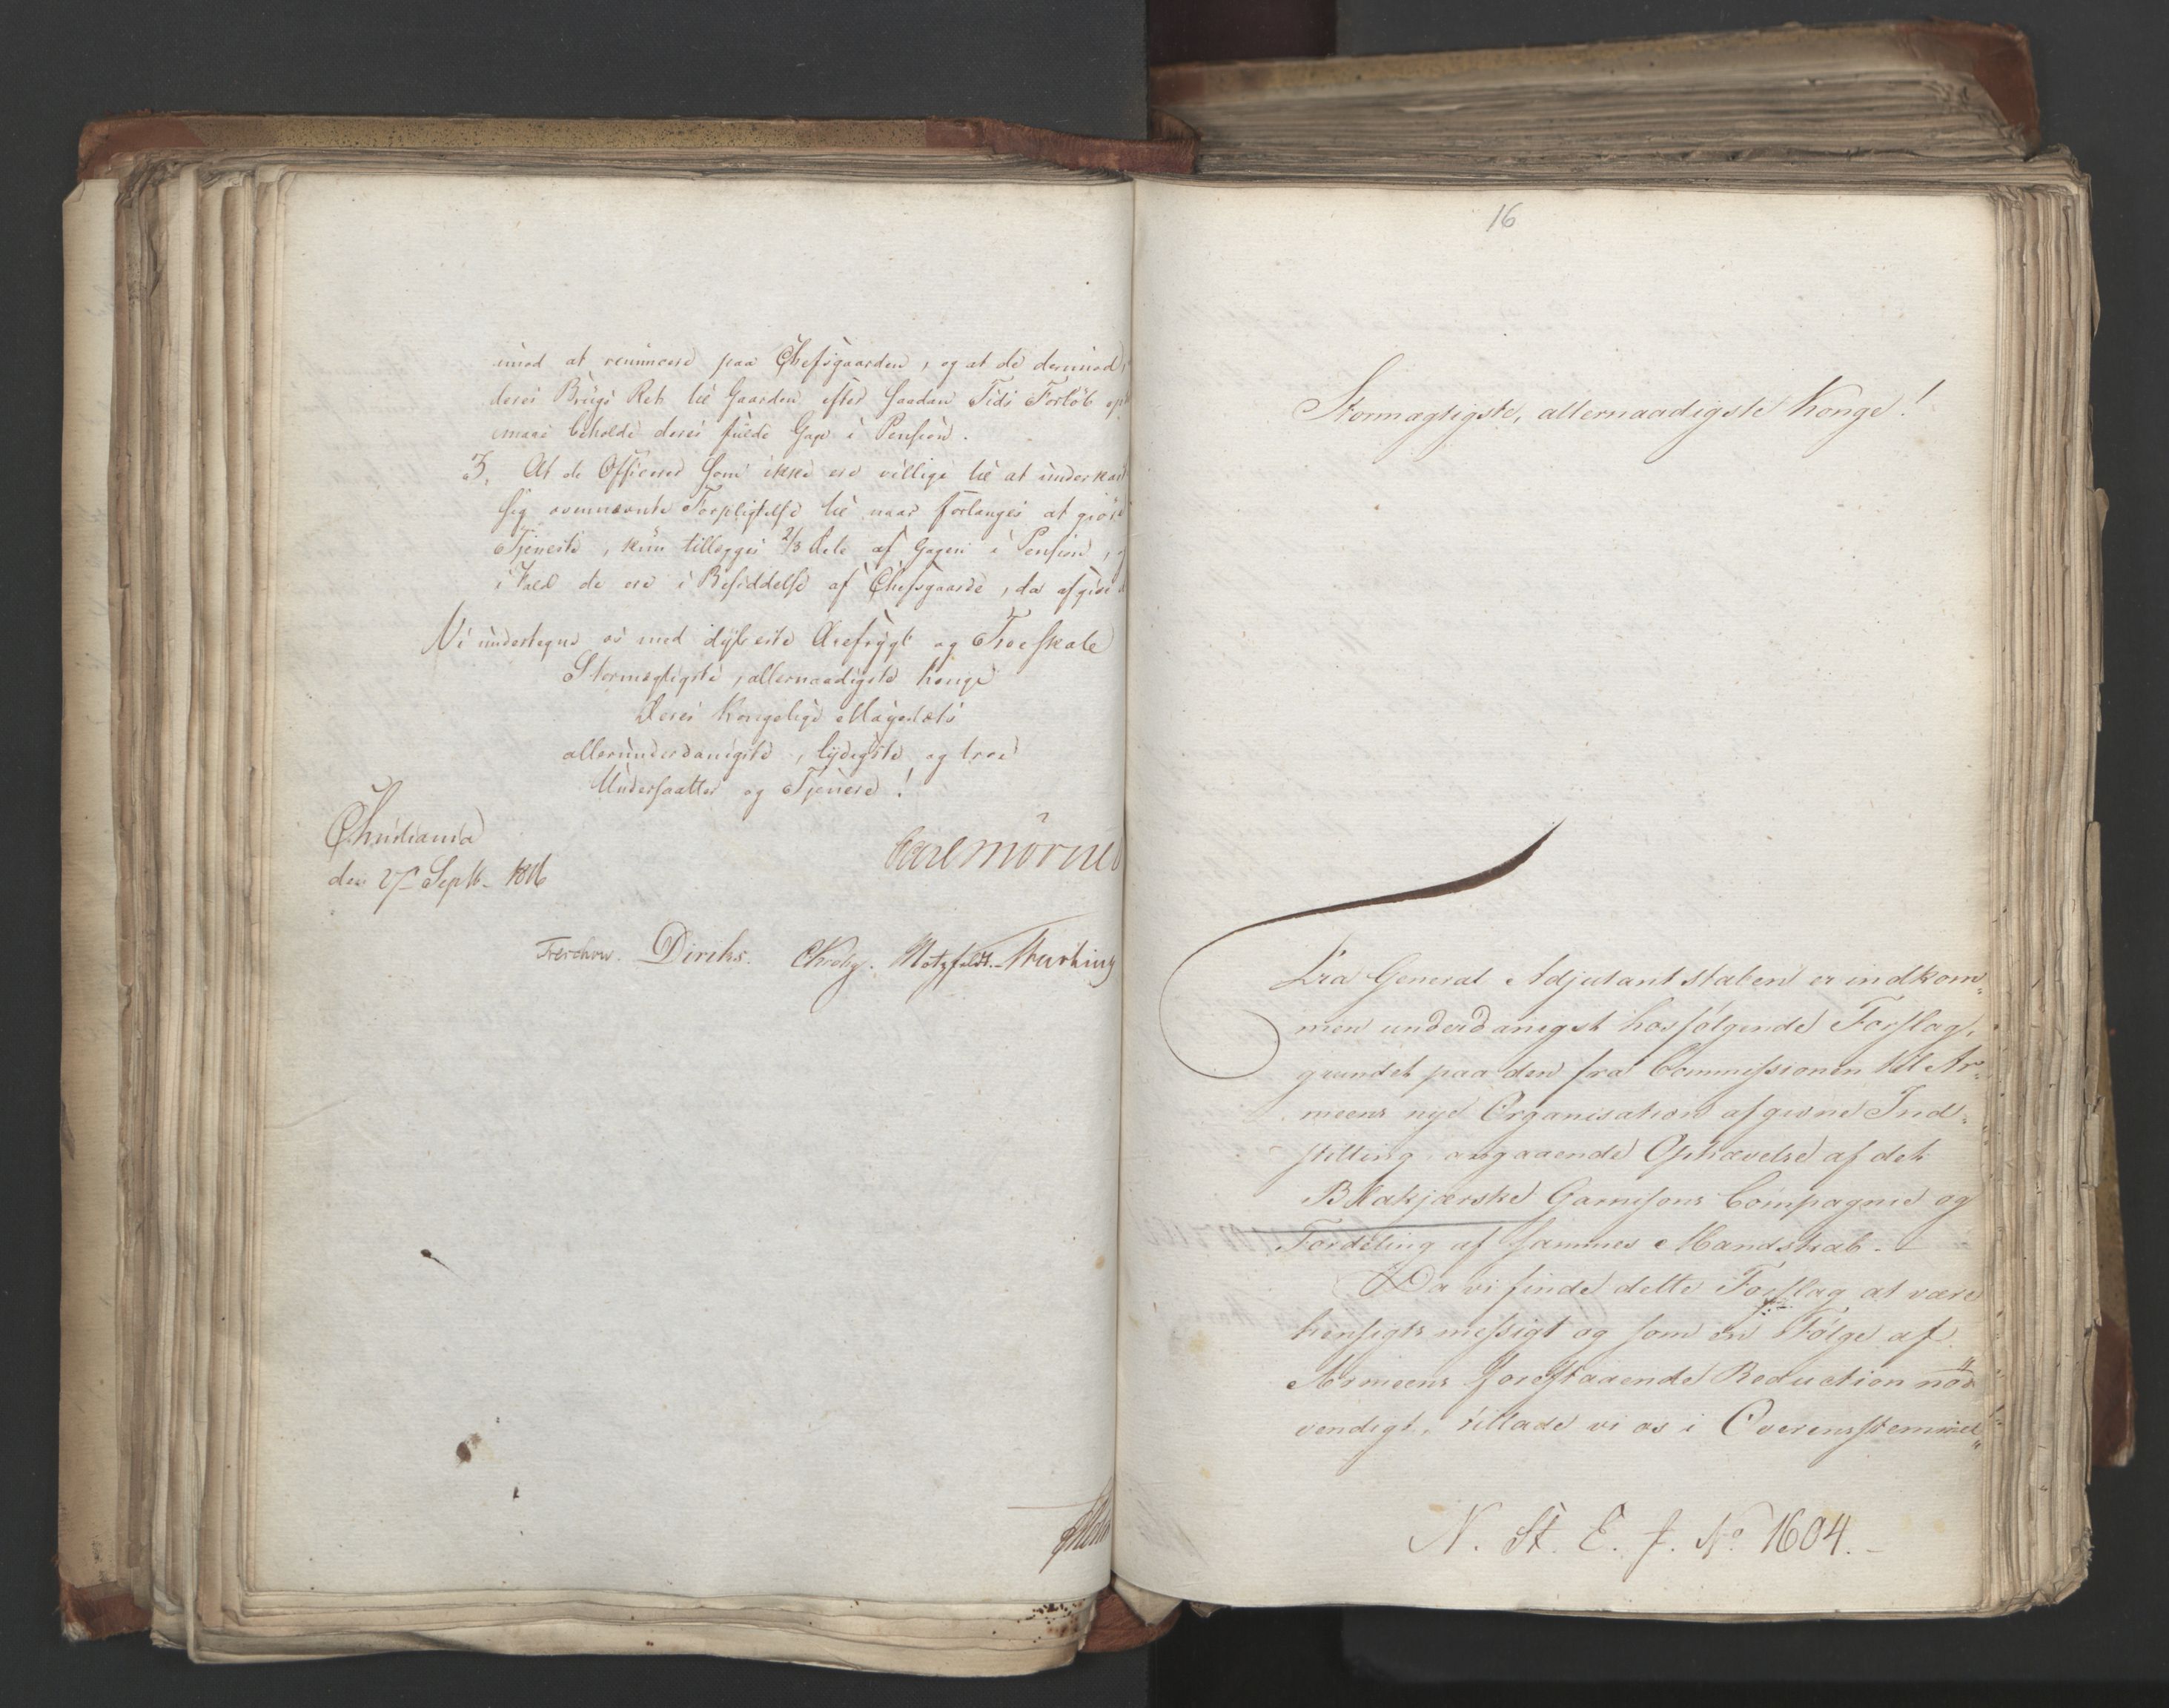 imod at renuncere paa Chefsgaarden, og at de derimod
deres Brugs Ret til Gaarden efter saadan Tids Forløb op
maae beholde deres fulde Gage i Pension.
3, At de Officerer som ikke ere villige til at underkas
sig ovennævnte Forpligtelse til naar forlanges at giøre
Tjeneste, kun tillægges 2/3 Dele af Gagen i Pension,
i Fald de ere i Besiddelse af Chefsgaarde, da afgive
Vi undertegne os med dybeste Ærefrygt og Troeskab
Stormægtigste, allernaadigste Konge
Deres Kongelige Majestæts
allerunderdanigste, lydigste og troe
Undersaatter og Tjenere!
Christiania
den 27 Septb. 1816
Carl Mörner
Treschow. Diriks. Krohg. Motzfeldt.
16
Stormægtigste, allernaadigste Konge!
Fra General Adjutantstaben er indkom„
men underdanigst hosfølgende Forslag,
grundet paa den fra Commissionen til Ar„
meens nye Organisation afgivne Ind„
stilling angaaende Ophævelse af det
Blakjærske Garnisons Compagnie og
Fordeling af sammes Mandskab. –
Da vi finde dette Forslag at være
hensigtsmessigt og som en Følge af
Armeens forestaaende Reduction nød„
vendigt, tillade vi os i Overensstemmel„
N. St. E. J. No 1604. –